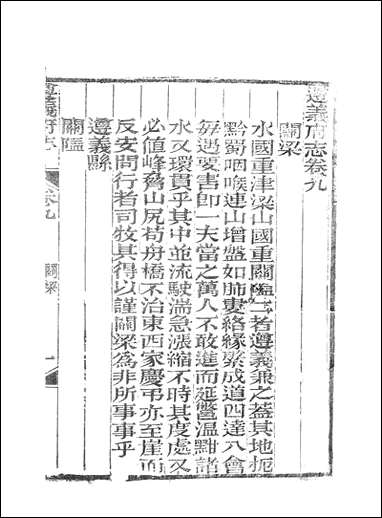 遵義府志卷九
關梁
水國重津梁山國重關隘二者遵義兼之蓋其地扼
黔蜀咽喉連山增盤如肺㜢絡緣縈成道四達八會
每遇要害即一夫當之萬人不敢進而延鱉溫黚諸
水又環貫乎其中並流駛湍急漲縮不時其度處又
必値峰脊山尻苟舟橋不治東西家慶弔亦至崖而
反安問行者司牧其得以謹關梁為非所事事乎
遵義縣
關隘
遵義府志
卷九
關梁
一